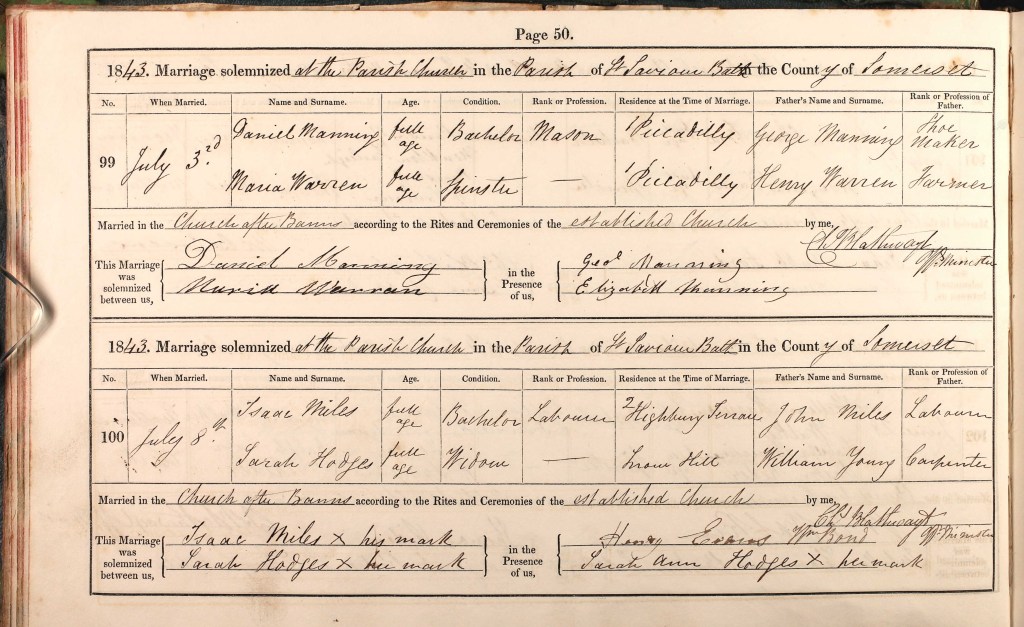 Page 50.
1843. Marriage solemnized at the Parish Church in the Parish of St Saviour Bath in the County of Somerset
No. When Married. Name and Surname. Age. Condition. Rank or Profession. Residence at the Time of Marriage. Father's Name and Surname. Rank or Profession of Father.
99 July 3rd Daniel Manning full age Bachelor Mason 1 Piccadilly George Manning Shoe Maker
Maria Warren full age Spinster — 1 Piccadilly Henry Warren Farmer
Married in the Church after Banns according to the Rites and Ceremonies of the established Church by me,
Chs Blathwayt Offg Minister
This Marriage was solemnized between us, Daniel Manning in the Presence of us, Geo Manning
Maria Warran Elizabeth Manning
1843. Marriage solemnized at the Parish Church in the Parish of St Saviour Bath in the County of Somerset
No. When Married. Name and Surname. Age. Condition. Rank or Profession. Residence at the Time of Marriage. Father's Name and Surname. Rank or Profession of Father.
100 July 8th Isaac Miles full age Bachelor Labourer 2 Highbury Terrace John Miles Labourer
Sarah Hodges full age Widow — Snow Hill William Young Carpenter
Married in the Church after Banns according to the Rites and Ceremonies of the established Church by me,
Chs Blathwayt Offg Minister
This Marriage was solemnized between us, Isaac Miles X his mark in the Presence of us, Henry Evans Wm Bond
Sarah Hodges X her mark Sarah Ann Hodges X her mark